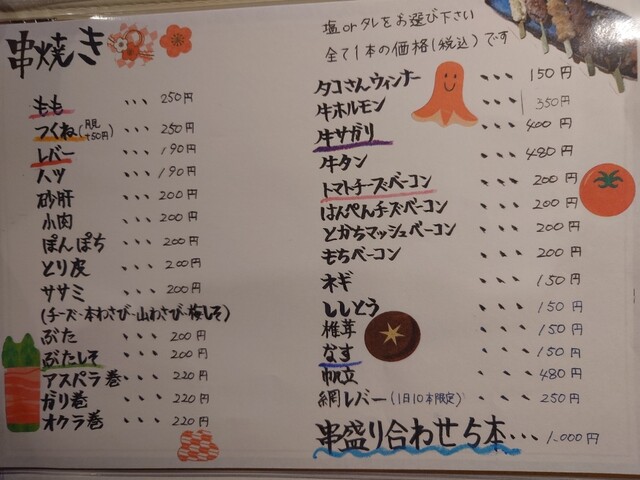 串焼き
もも ... 250円
つくね(月見+50円) ... 250円
レバー ... 190円
ハツ ... 190円
砂肝 ... 200円
小肉 ... 200円
ぽんぽち ... 200円
とり皮 ... 200円
ササミ ... 200円
(チーズ・本わさび・山わさび・梅しそ)
ぶた ... 200円
ぶたしそ ... 200円
アスパラ巻 ... 220円
ガリ巻 ... 220円
オクラ巻 ... 220円
塩orタレをお選び下さい
全て1本の価格(税込)です
タコさんウィンナー ... 150円
牛ホルモン ... 350円
牛サガリ ... 400円
牛タン ... 480円
トマトチーズベーコン ... 200円
はんぺんチーズベーコン ... 200円
とかちマッシュベーコン ... 200円
もちベーコン ... 200円
ネギ ... 150円
ししとう ... 150円
椎茸 ... 150円
なす ... 150円
帆立 ... 480円
網レバー(1日10本限定) ... 250円
串盛り合わせ5本... 1.000円